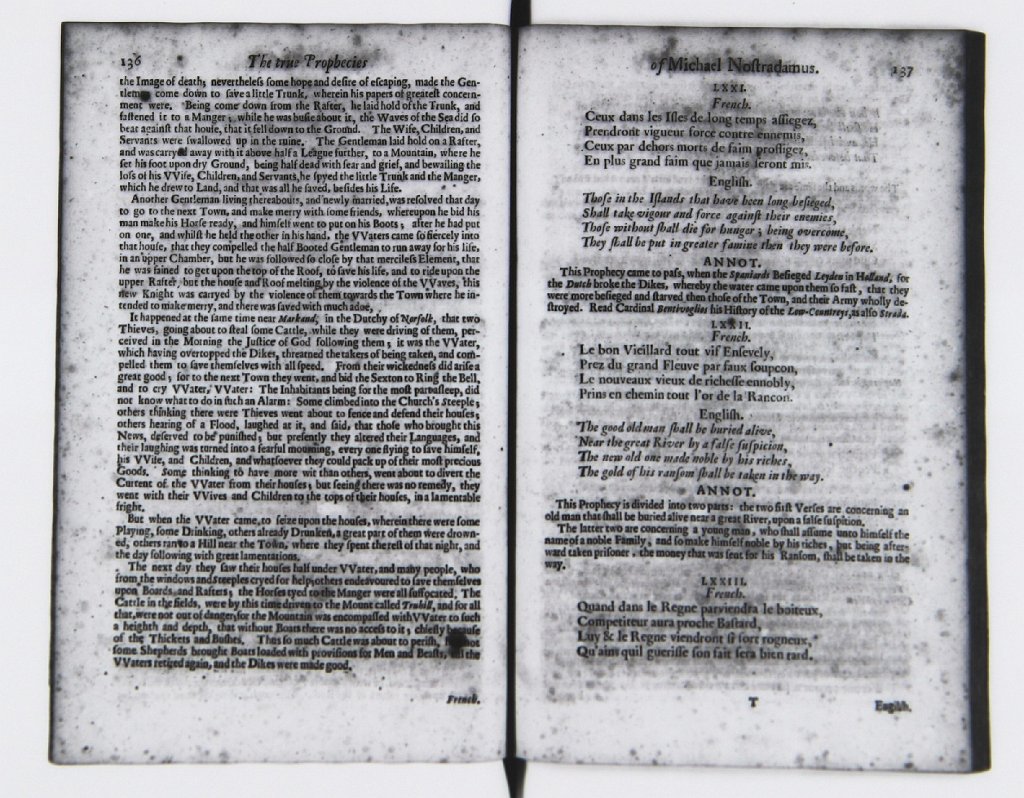 136 The true Prophecies
the Image of death; nevertheleſs ſome hope and deſire of eſcaping, made the Gen-
tleman come down to ſave a little Trunk, wherein his papers of greateſt concern-
ment were. Being come down from the Rafter, he laid hold of the Trunk, and
faſtened it to a Manger; while he was buſie about it, the Waves of the Sea did ſo
beat againſt that houſe, that it fell down to the Ground. The Wife, Children, and
Servants were ſwallowed up in the ruine. The Gentleman laid hold on a Rafter,
and was carryed away with it above half a League further, to a Mountain, where he
ſet his foot upon dry Ground, being half dead with fear and grief, and bewailing the
loſs of his VVife, Children, and Servants, he ſpyed the little Trunk and the Manger,
which he drew to Land, and that was all he ſaved, beſides his Life.
Another Gentleman living thereabouts, and newly married, was reſolved that day
to go to the next Town, and make merry with ſome friends, whereupon he bid his
man make his Horſe ready, and himſelf went to put on his Boots; after he had put
on one, and whilſt he held the other in his hand, the VVaters came ſo fiercely into
that houſe, that they compelled the half Booted Gentleman to run away for his life,
in an upper Chamber, but he was followed ſo cloſe by that mercileſs Element, that
he was fained to get upon the top of the Roof, to ſave his life, and to ride upon the
upper Rafter, but the houſe and Roof melting by the violence of the VVaves, this
new Knight was carryed by the violence of them towards the Town where he in-
tended to make merry, and there was ſaved with much adoe.
It happened at the ſame time near Markand, in the Dutchy of Norfolk, that two
Thieves, going about to ſteal ſome Cattle, while they were driving of them, per-
ceived in the Morning the Juſtice of God following them; it was the VVater,
which having overtopped the Dikes, threatned the takers of being taken, and com-
pelled them to ſave themſelves with all ſpeed. From their wickedneſs did ariſe a
great good; for to the next Town they went, and bid the Sexton to Ring the Bell,
and to cry VVater, VVater: The Inhabitants being for the moſt part aſleep, did
not know what to do in ſuch an Alarm: Some climbed into the Church's Steeple;
others thinking there were Thieves went about to fence and defend their houſes;
others hearing of a Flood, laughed at it, and ſaid, that thoſe who brought this
News, deſerved to be puniſhed; but preſently they altered their Languages, and
their laughing was turned into a fearful mourning, every one flying to ſave himſelf,
his VVife, and Children, and whatſoever they could pack up of their moſt precious
Goods. Some thinking to have more wit than others, went about to divert the
Current of the VVater from their houſes; but ſeeing there was no remedy, they
went with their VVives and Children to the tops of their houſes, in a lamentable
fright.
But when the VVater came, to ſeize upon the houſes, wherein there were ſome
Playing, ſome Drinking, others already Drunken, a great part of them were drown-
ed, others ran to a Hill near the Town, where they ſpent the reſt of that night, and
the day following with great lamentations.
The next day they ſaw their houſes half under VVater, and many people, who
from the windows and ſteeples cryed for help; others endeavoured to ſave themſelves
upon Boards and Rafters; the Horſes tyed to the Manger were all ſuffocated. The
Cattle in the fields, were by this time driven to the Mount called Truhill, and for all
that, were not out of danger, for the Mountain was encompaſſed with VVater to ſuch
a heighth and depth, that without Boats there was no acceſs to it; chiefly becauſe
of the Thickets and Buſhes. Thus ſo much Cattle was about to periſh,
ſome Shepherds brought Boats loaded with proviſions for Men and Beaſts, till the
VVaters retired again, and the Dikes were made good.
French.
of Michael Noſtradamus. 137
LXXI.
French.
Ceux dans les Iſles de long temps aſſiegez,
Prendront vigueur force contre ennemis,
Ceux par dehors morts de faim profligez,
En plus grand faim que jamais ſeront mis.
Engliſh.
Thoſe in the Iſlands that have been long beſieged,
Shall take vigour and force againſt their enemies,
Thoſe without ſhall die for hunger; being overcome,
They ſhall be put in greater famine then they were before.
ANNOT.
This Prophecy came to paſs, when the Spaniards Beſieged Leyden in Holland, for
the Dutch broke the Dikes, whereby the water came upon them ſo faſt, that they
were more beſieged and ſtarved then thoſe of the Town, and their Army wholly de-
ſtroyed. Read Cardinal Bentivoglios his Hiſtory of the Low-Countreys, as alſo Strada.
LXXII.
French.
Le bon Vieillard tout vif Enſevely,
Prez du grand Fleuve par faux ſoupcon,
Le nouveaux vieux de richeſſe ennobly,
Prins en chemin tout l'or de la Rancon.
Engliſh.
The good old man ſhall be buried alive,
Near the great River by a falſe ſuſpicion,
The new old one made noble by his riches,
The gold of his ranſom ſhall be taken in the way.
ANNOT.
This Prophecy is divided into two parts: the two firſt Verſes are concerning an
old man that ſhall be buried alive near a great River, upon a falſe ſuſpition.
The latter two are concerning a young man, who ſhall aſſume unto himſelf the
name of a noble Family, and ſo make himſelf noble by his riches, but being after-
ward taken priſoner, the money that was ſent for his Ranſom, ſhall be taken in the
way.
LXXIII.
French.
Quand dans le Regne parviendra le boiteux,
Competiteur aura proche Baſtard,
Luy & le Regne viendront ſi fort rogneux,
Qu'ains quil gueriſſe ſon fait ſera bien tard.
T Engliſh.